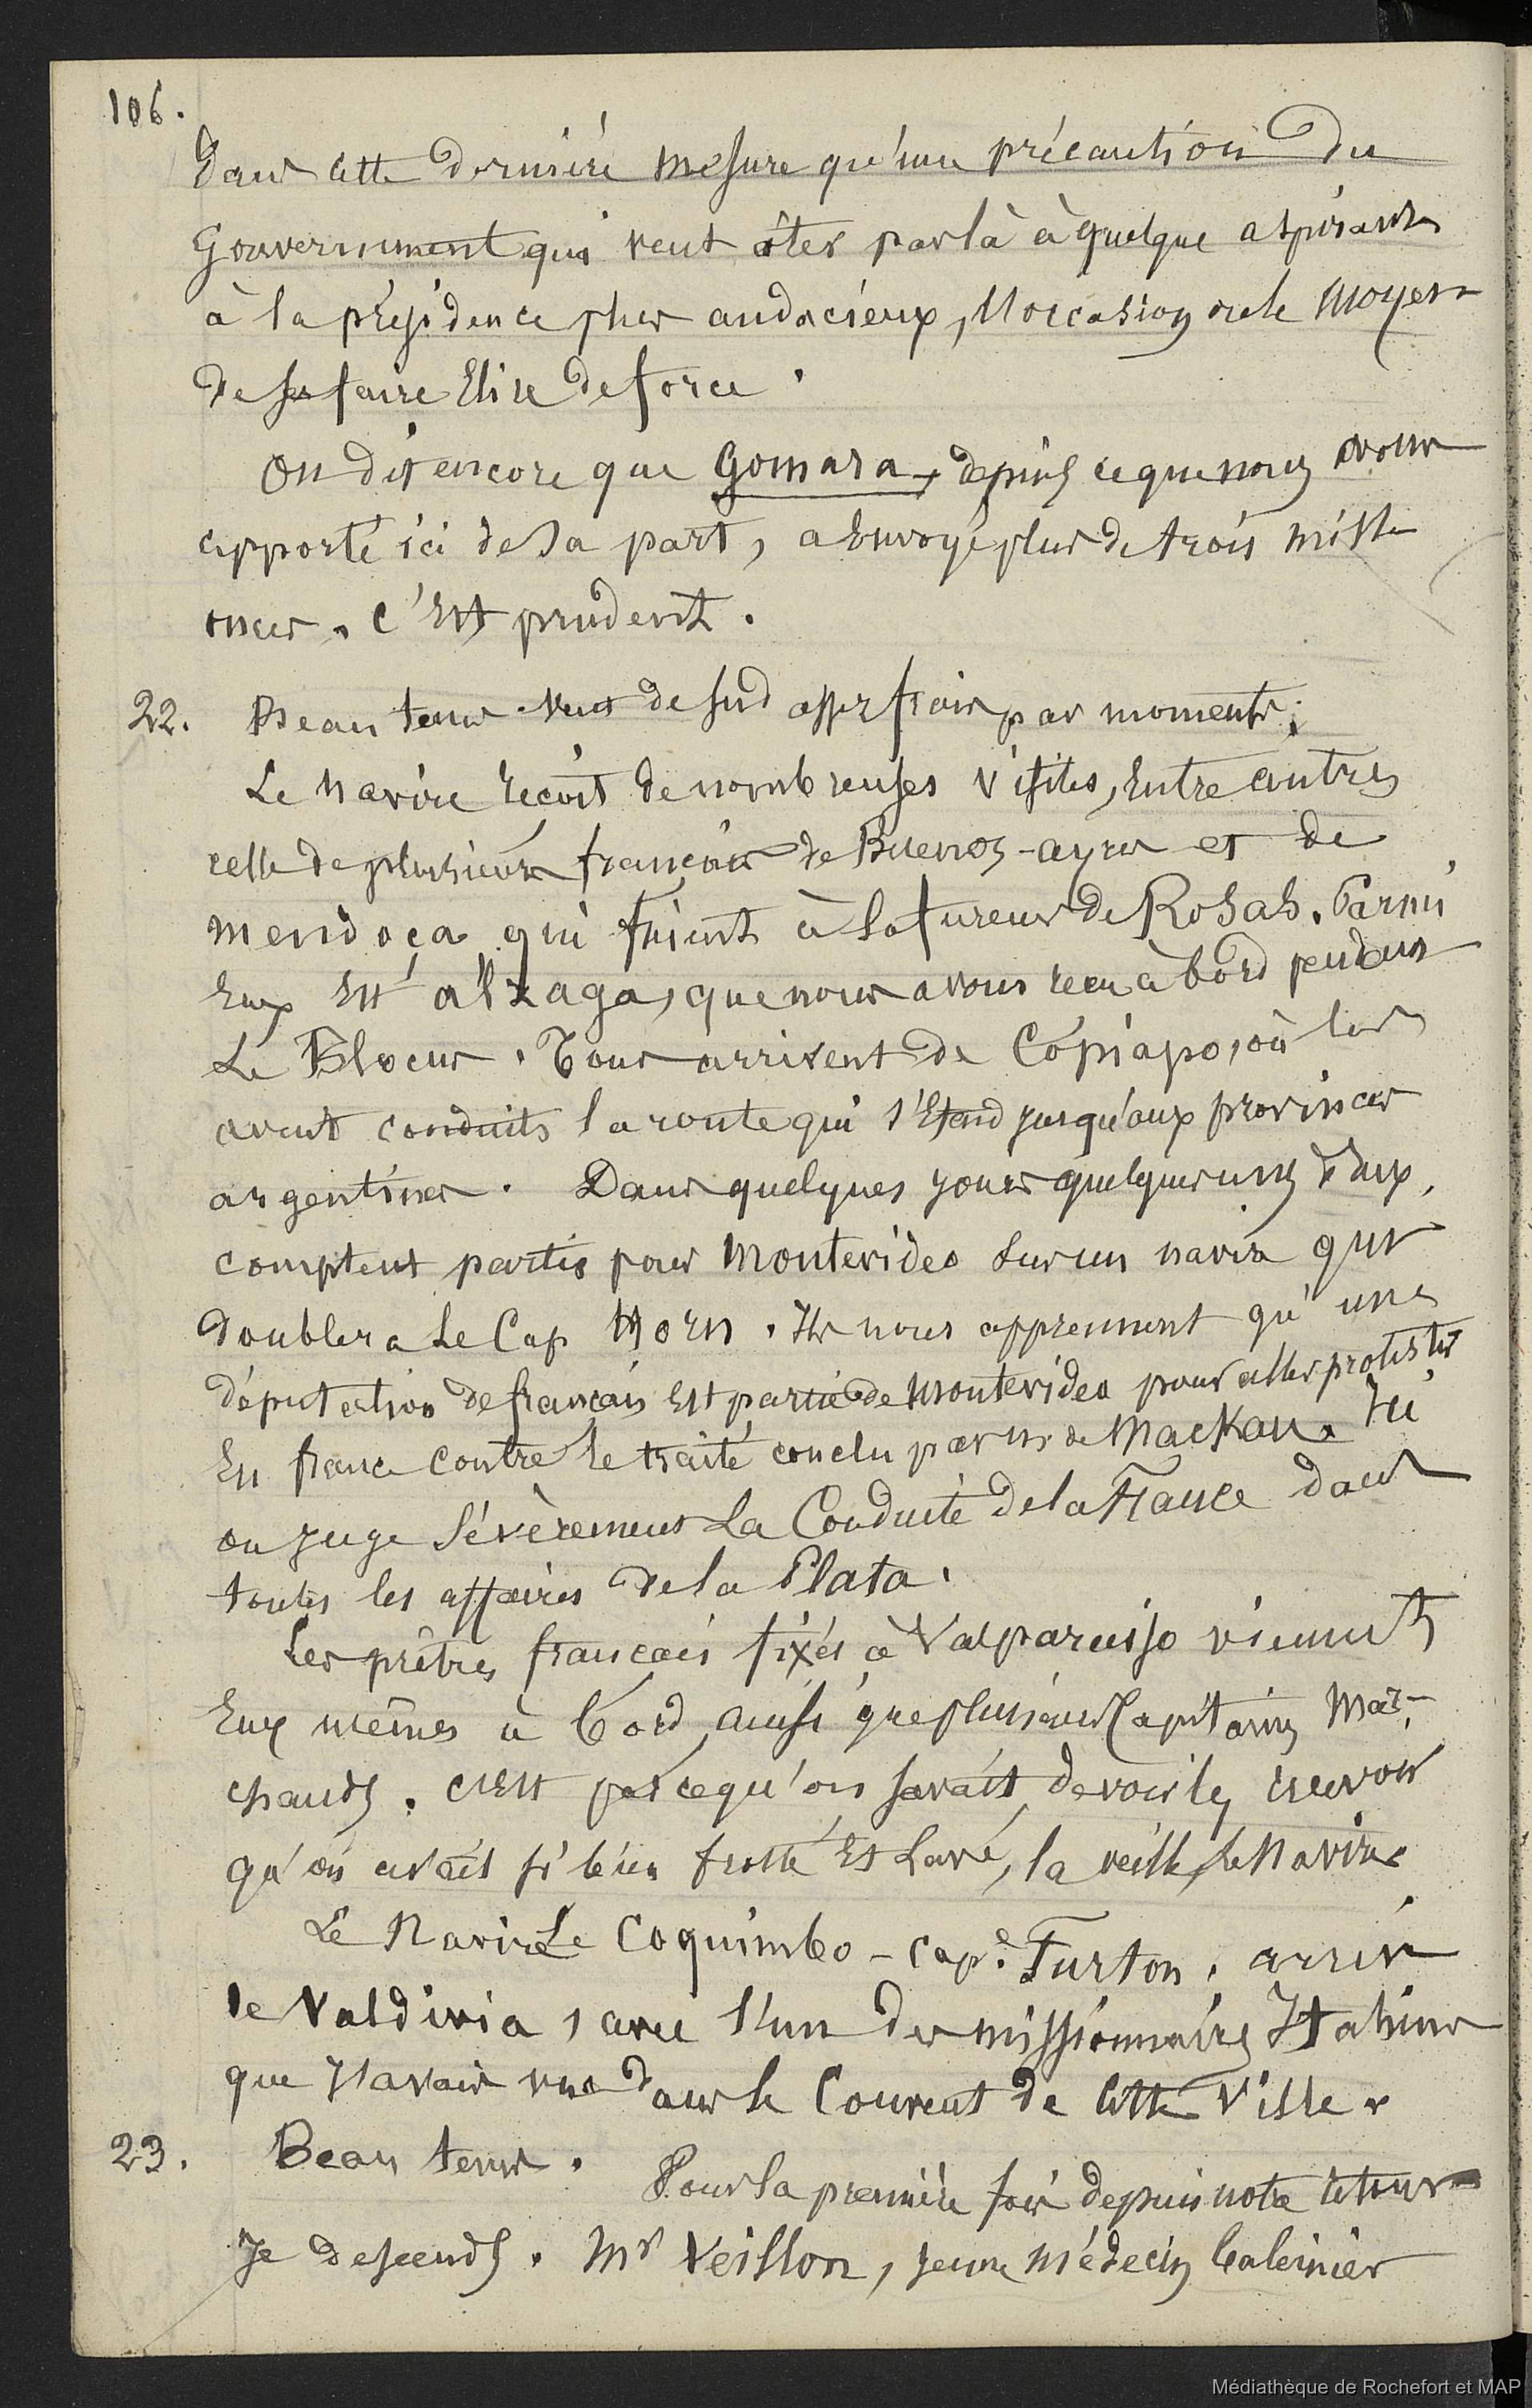 106.
dans cette dernière mesure qu'une précaution du
Gouvernement qui veut ôter par là à quelque aspirants
à la présidence plus audacieux, l'occasion ou le moyen
de se faire élire de force.
On dit encore que Gomara, depuis ce que nous avons
apporté ici de sa part, a envoyé plus de trois mille
onces. C'est prudent.
22. Beau tems. Vent de sud assez frais par moments.
Le navire reçoit de nombreuses visites, entre autres
celle de plusieurs français de Buenos-ayres et de
mendoça qui fuient à la fureur de Rosas. Parmi
eux est alzaga, que nous avons reçu à bord pendant
Le Blocus. Tous arrivent de Copiapo, où les
avait conduits la route qui s'étend jusqu'aux provinces
argentines. Dans quelques jours quelques uns d'eux,
comptent partir pour Montevideo sur un navire qui
doublera Le Cap Horn. Ils nous apprennent qu'une
députation de français est partie de Montevideo pour aller protester
En france contre le traité conclu par mr de Mackau. Ici
on juge sévèrement La Conduite de la France dans
toutes les affaires de la Plata.
Les prêtres français fixés à Valparaiso viennent
Eux mêmes à bord, ainsi que plusieurs Capitaines Mar-
chands. C'est parcequ'on savait devoir les recevoir
qu'on avait si bien frotté et Lavé, la veille, le Navire.
Le Navire Le Coquimbo - cape. Turton, arrive
de Valdivia, avec l'un des missionnaires Italiens
que j'avais vus dans le Couvent de cette Ville.
23. Beau tems. Pour la première fois depuis notre retour
Je descends. Mr Veillon, jeune médecin baleinier
Médiathèque de Rochefort et MAP